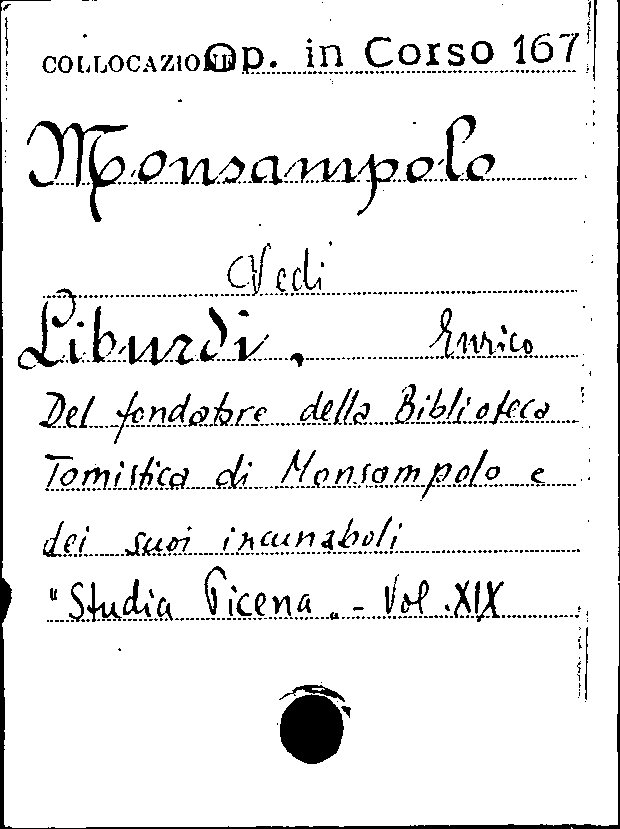 COLLOCAZIONE Op. in Corso 167
Monsampolo
Vedi
Liburdi, Enrico
Del fondatore della Biblioteca
Tomistica di Monsampolo e
dei suoi incunaboli
"Studia Picena„ - Vol. XIX